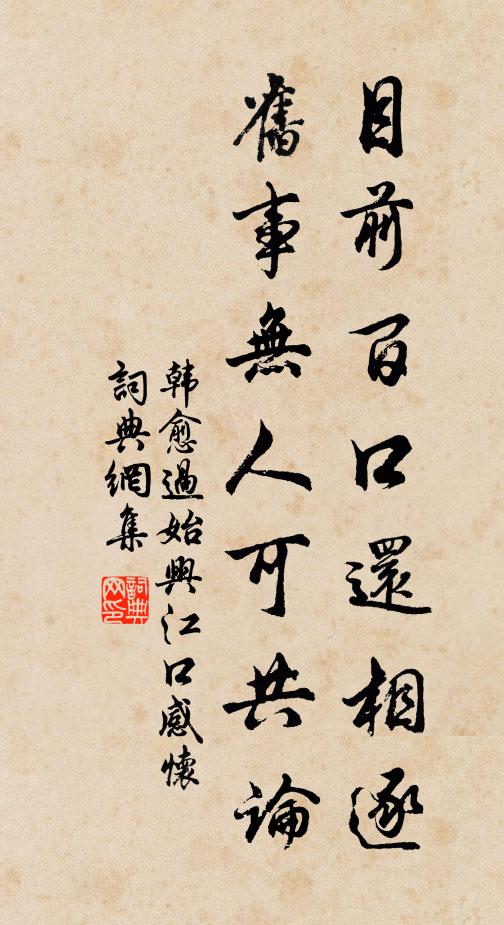 目前百口還相逐
舊事無人可共論
韓愈過始興江口感懷
詞典網集
詞典
网印